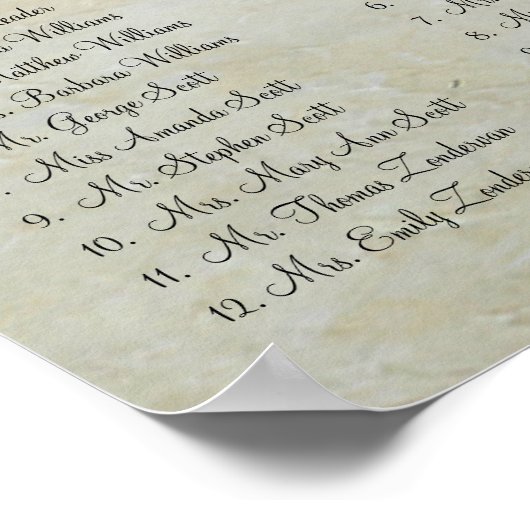 eader
Williams
Matthew Williams
Barbara Williams
Mr. George Scott
Miss Amanda Scott
9. Mr. Stephen Scott
10. Mrs. Mary Ann Scott
11. Mr. Thomas Zondervan
12. Mrs. Emily Zonder
6.
7.
8.